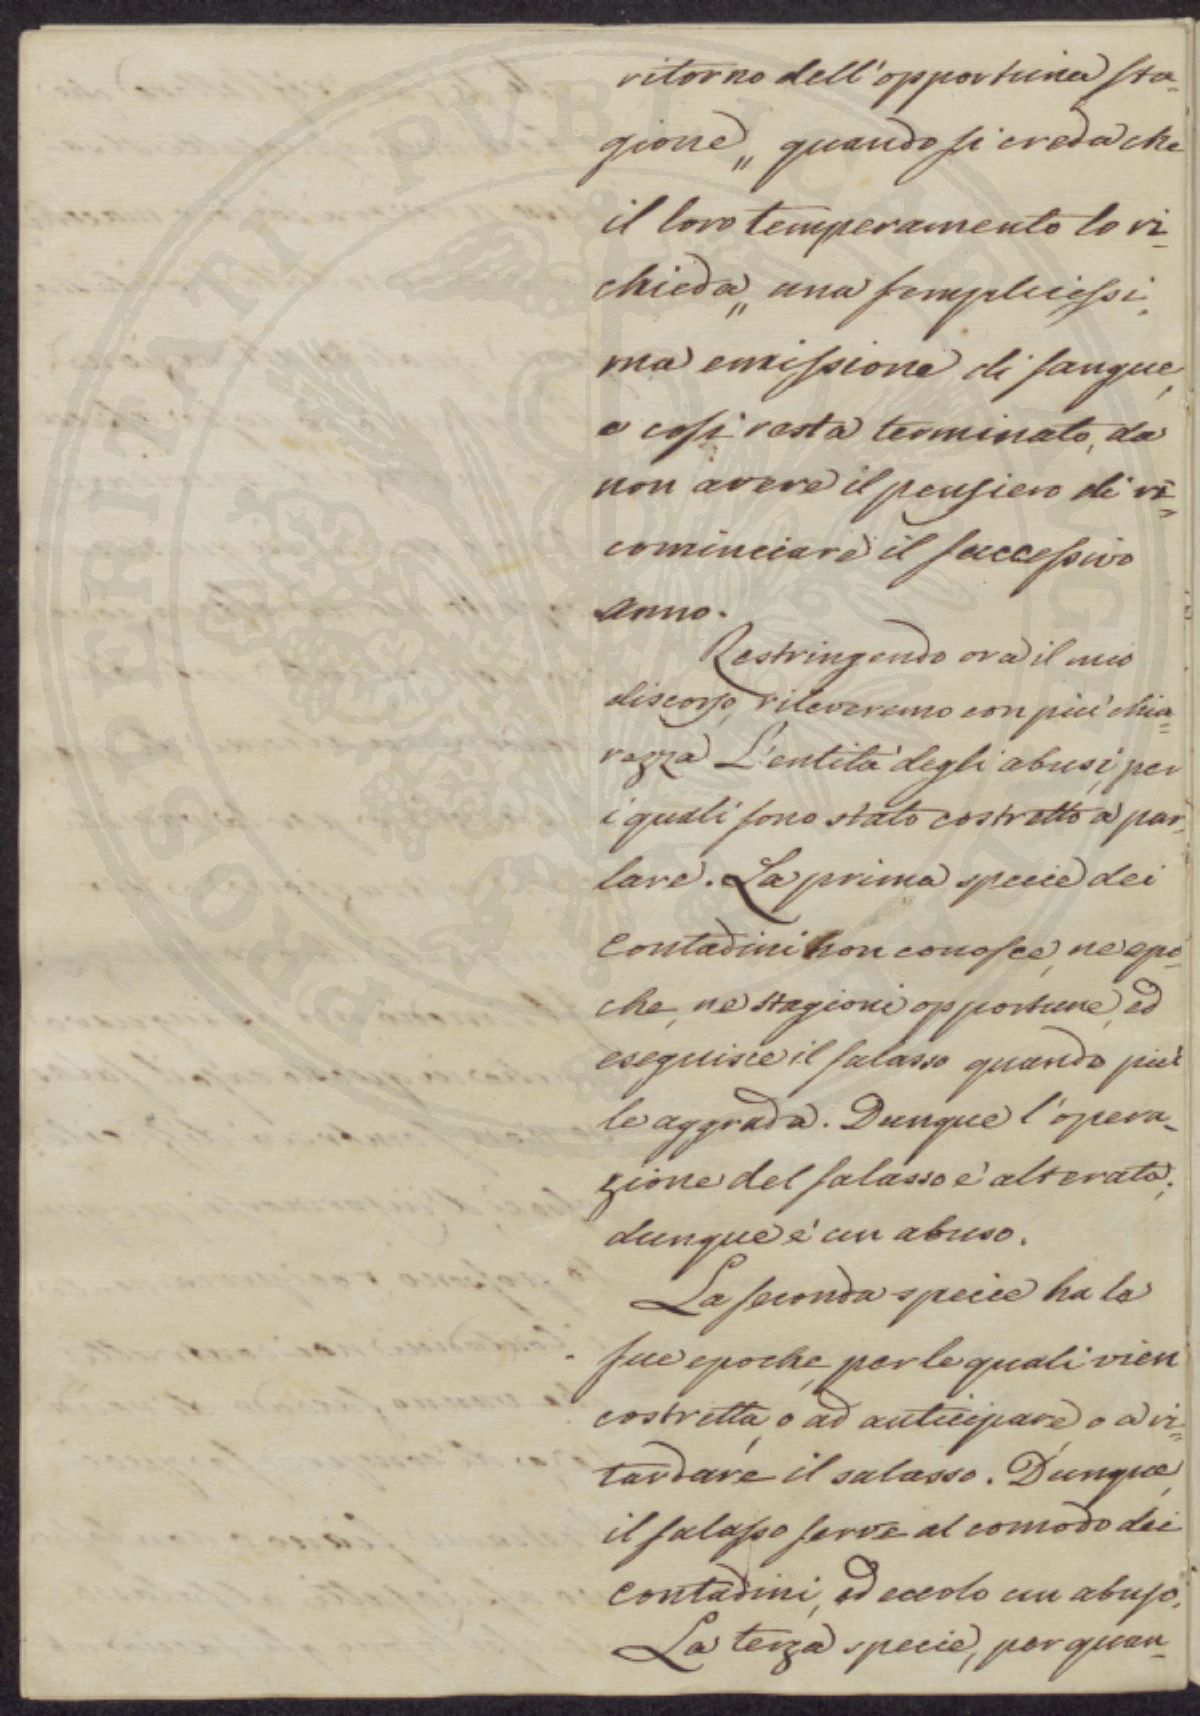 ritorno dell'opportuna sta-
gione „ quando si creda che
il loro temperamento lo ri-
chieda „ una semplicissi-
ma emissione di sangue,
e così resta terminato, da
non avere il pensiero di ri=
cominciare il successivo
anno.
Restringendo ora il mio
discorso, rileveremo con più chia=
rezza L'entità degli abusi, per
i quali sono stato costretto a par-
lare. La prima specie dei
Contadini non conosce, ne epo-
che, ne stagioni opportune, ed
eseguisce il salasso quando più
le aggrada. Dunque l'opera-
zione del salasso è alterata;
dunque è un abuso.
La seconda specie ha le
sue epoche, per le quali vien
costretta, o ad anticipare, o a ri=
tardare il salasso. Dunque,
il salasso serve al comodo dei
Contadini, ed eccolo un abuso.
La terza specie, per quan-
PROSPERITATI PVBLICAE AVGENDAE